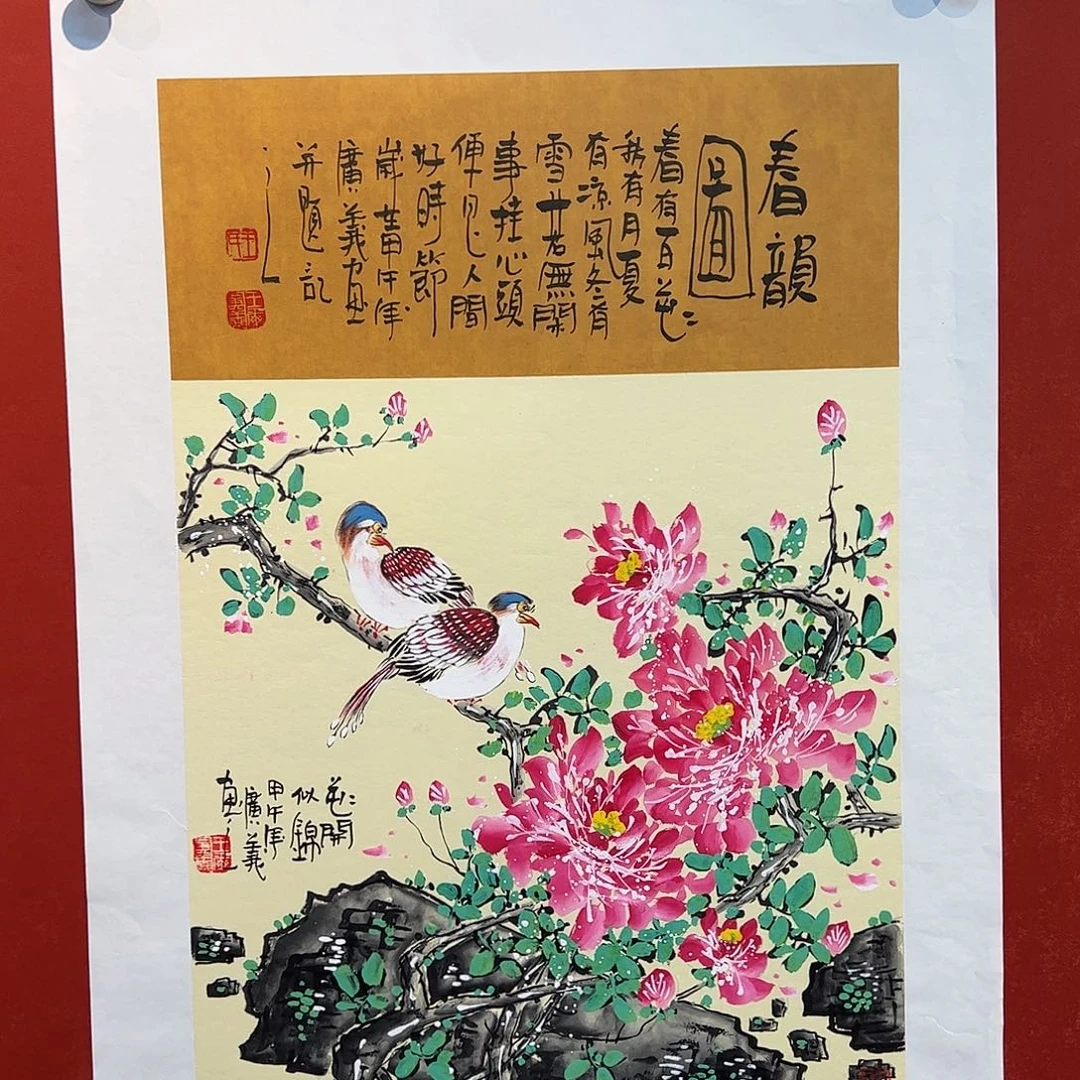 春韻
圖
春有百花
秋有月夏
有凉風冬有
雪若無閑
事挂心頭
便是人間
好時節
歲甲午年
廣義画
并題記
花開
似錦
甲午年
廣義
画